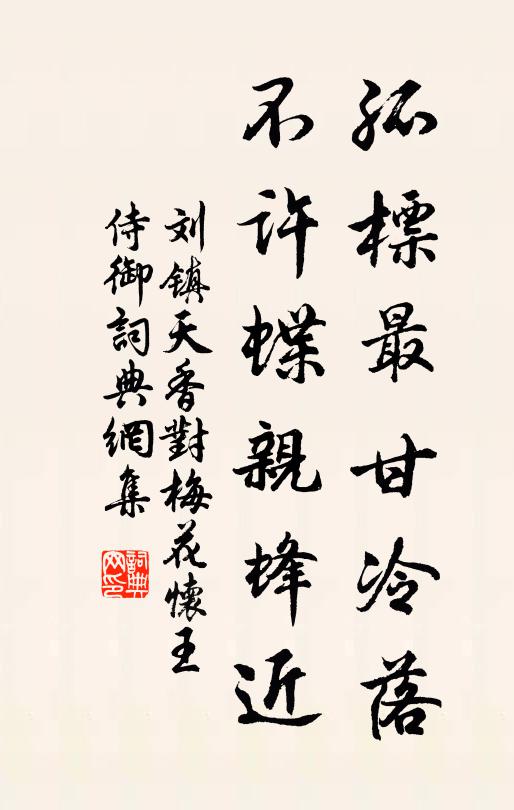 孤標最甘冷落
不許蝶親蜂近
刘镇天香對梅花懷王
侍御詞典網集
詞典网印